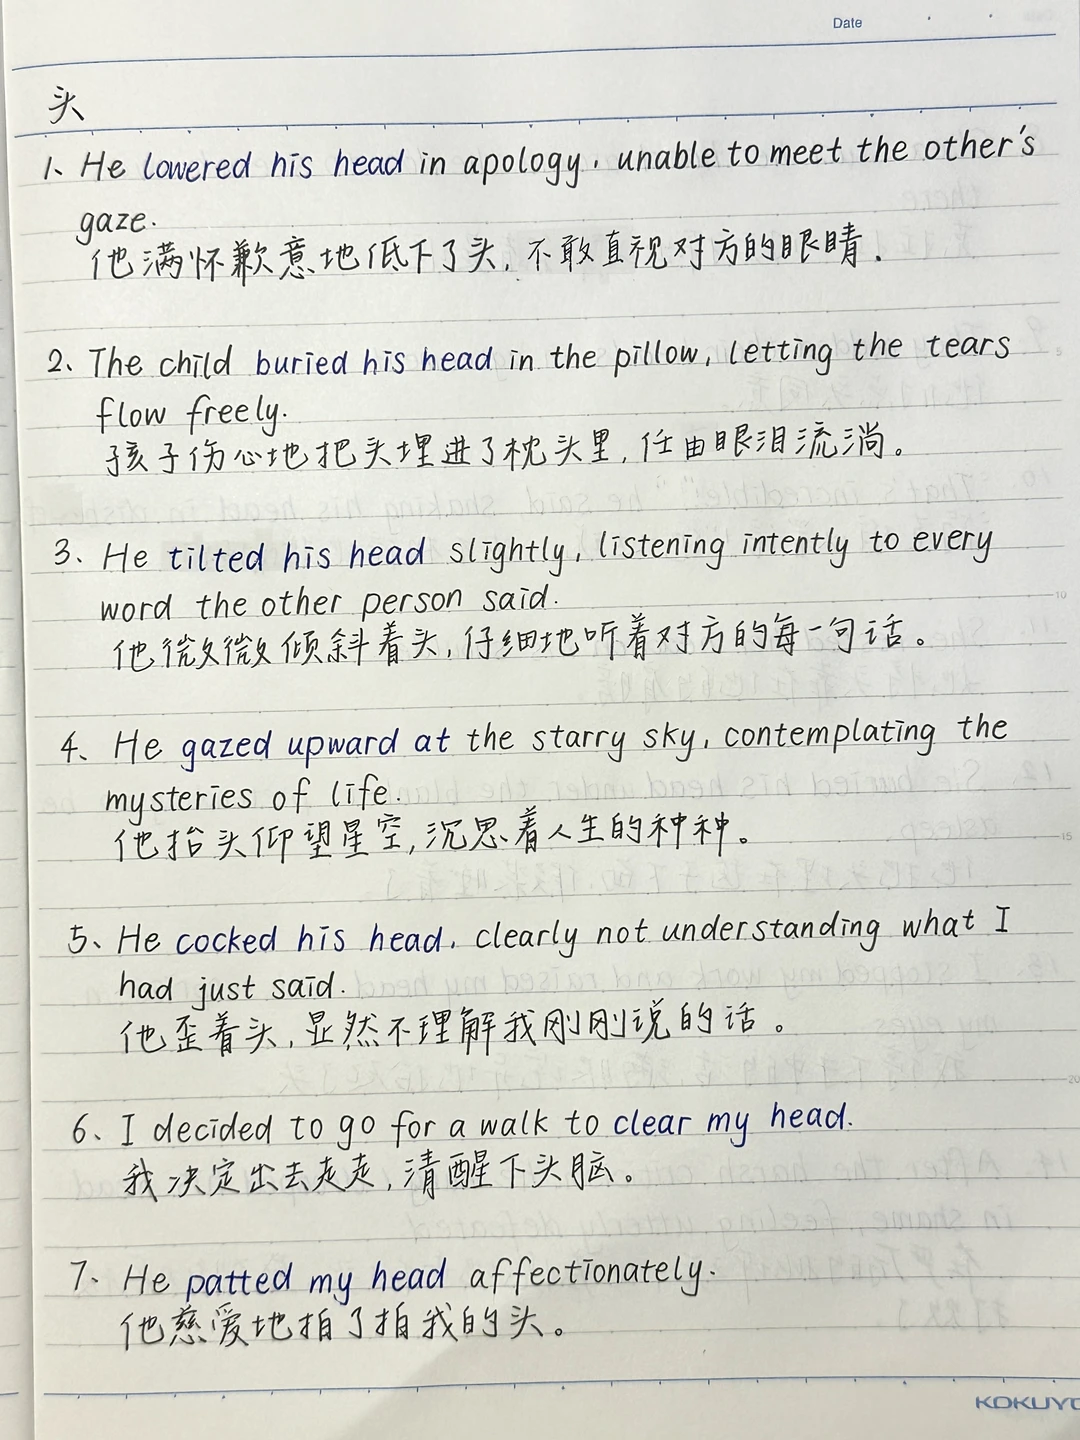 Date
头
1、He lowered his head in apology, unable to meet the other's
gaze.
他满怀歉意地低下了头,不敢直视对方的眼睛.
2、The child buried his head in the pillow, letting the tears
flow freely.
孩子伤心地把头埋进了枕头里,任由眼泪流淌。
3、He tilted his head slightly, listening intently to every
word the other person said.
他微微倾斜着头,仔细地听着对方的每一句话。
4、He gazed upward at the starry sky, contemplating the
mysteries of life.
他抬头仰望星空,沉思着人生的种种。
5、He cocked his head, clearly not understanding what I
had just said.
他歪着头,显然不理解我刚刚说的话。
6、I decided to go for a walk to clear my head.
我决定出去走走,清醒下头脑。
7、He patted my head affectionately.
他慈爱地拍了拍我的头。
KOKUYO